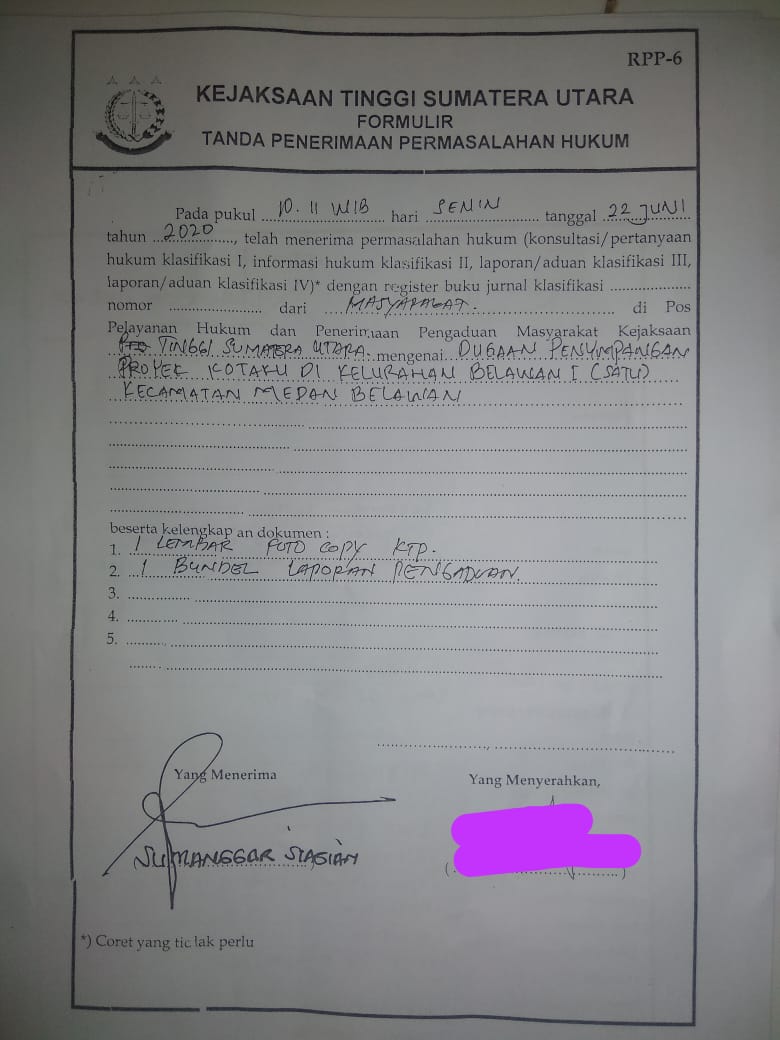 RPP-6
KEJAKSAAN TINGGI SUMATERA UTARA
FORMULIR
TANDA PENERIMAAN PERMASALAHAN HUKUM
Pada pukul 10.11 WIB hari SENIN tanggal 22 JUNI
tahun 2020, telah menerima permasalahan hukum (konsultasi/pertanyaan
hukum klasifikasi I, informasi hukum klasifikasi II, laporan/aduan klasifikasi III,
laporan/aduan klasifikasi IV)* dengan register buku jurnal klasifikasi ....................
nomor ........................ dari MASYARAKAT. di Pos
Pelayanan Hukum dan Penerimaan Pengaduan Masyarakat Kejaksaan
TINGGI SUMATERA UTARA. mengenai DUGAAN PENYIMPANGAN
PROYEK KOTAKU DI KELURAHAN BELAWAN I (SATU)
KECAMATAN MEDAN BELAWAN
beserta kelengkap an dokumen :
1. 1 LEMBAR FOTO COPY KTP.
2. 1 BUNDEL LAPORAN PENGADUAN.
3.
4.
5.
Yang Menerima
Yang Menyerahkan,
SUMANGGAR SIAGIAN
*) Coret yang tidak perlu